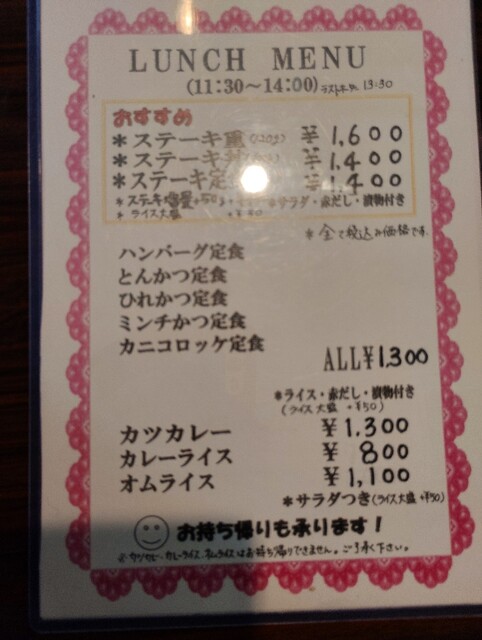 LUNCH MENU
(11:30～14:00) ラストオーダー 13:30
おすすめ
＊ステーキ重(120g) ¥1,600
＊ステーキ丼 ¥1,400
＊ステーキ定 ¥1,400
＊ステーキ増量+50g ＊サラダ・赤だし・漬物付き
＊ライス大盛
＊全て税込み価格です。
ハンバーグ定食
とんかつ定食
ひれかつ定食
ミンチかつ定食
カニコロッケ定食
ALL¥1,300
＊ライス・赤だし・漬物付き
(ライス大盛 +¥50)
カツカレー ¥1,300
カレーライス ¥800
オムライス ¥1,100
＊サラダつき(ライス大盛 +¥50)
お持ち帰りも承ります！
※カツカレー、カレーライス、オムライスはお持ち帰りできません。ご了承下さい。